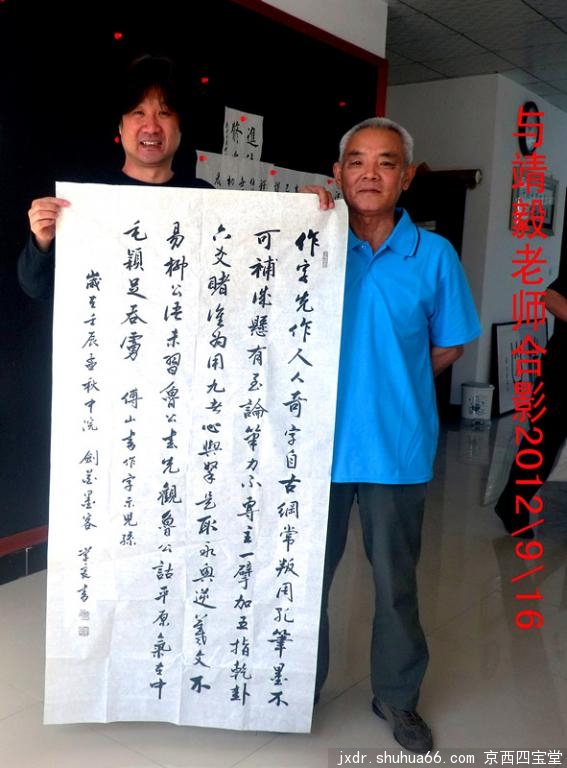 作字先作人人奇字自古綱常叛周孔筆墨不
可補誠懸有至論筆力不專主一臂加五指乾卦
六爻睹誰為用九者心與擎是取永興逆羲文不
易柳公語未習魯公書先觀魯公詁平原氣在中
毛穎足吞虜 傅山書作字示兒孫
歲在壬辰孟秋中浣 墨客 書
与靖毅老师合影2012\9\16
jxdr.shuhua66.com 京西四宝堂